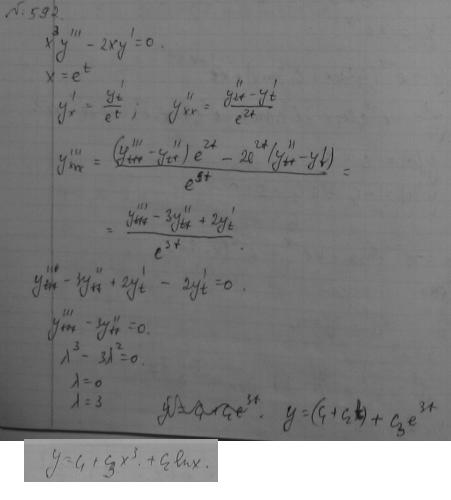 № 592
x³y''' - 2xy' = 0.
x = eᵗ
y'ₓ = y'ₜ / eᵗ ; y''ₓₓ = (y''ₜₜ - y'ₜ) / e²ᵗ
y'''ₓₓₓ = ((y'''ₜₜₜ - y''ₜₜ) e²ᵗ - 2e²ᵗ (y''ₜₜ - y'ₜ)) / e⁵ᵗ =
= (y'''ₜₜₜ - 3y''ₜₜ + 2y'ₜ) / e³ᵗ.
y'''ₜₜₜ - 3y''ₜₜ + 2y'ₜ - 2y'ₜ = 0.
y'''ₜₜₜ - 3y''ₜₜ = 0.
λ³ - 3λ² = 0.
λ = 0
λ = 3 y = (c₁ + c₂t) + c₃e³ᵗ
y = c₁ + c₃x³ + c₂ lnx.